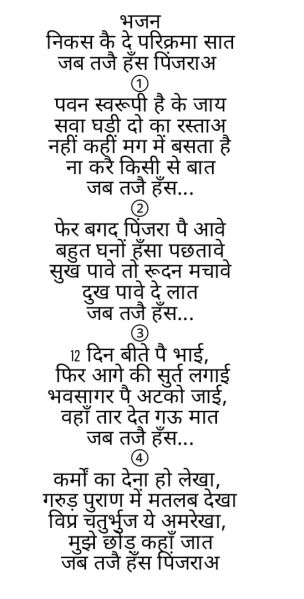 भजन
निकस कै दे परिक्रमा सात
जब तजै हँस पिंजराअ
①
पवन स्वरूपी है के जाय
सवा घड़ी दो का रस्ताअ
नहीं कहीं मग में बसता है
ना करै किसी से बात
जब तजै हँस...
②
फेर बगद पिंजरा पै आवे
बहुत घनों हँसा पछतावे
सुख पावे तो रूदन मचावे
दुख पावे दे लात
जब तजै हँस...
③
12 दिन बीते पै भाई,
फिर आगे की सुर्त लगाई
भवसागर पै अटको जाई,
वहाँ तार देत गऊ मात
जब तजै हँस...
④
कर्मों का देना हो लेखा,
गरुड़ पुराण में मतलब देखा
विप्र चतुर्भुज ये अमरेखा,
मुझे छोड़ कहाँ जात
जब तजै हँस पिंजराअ